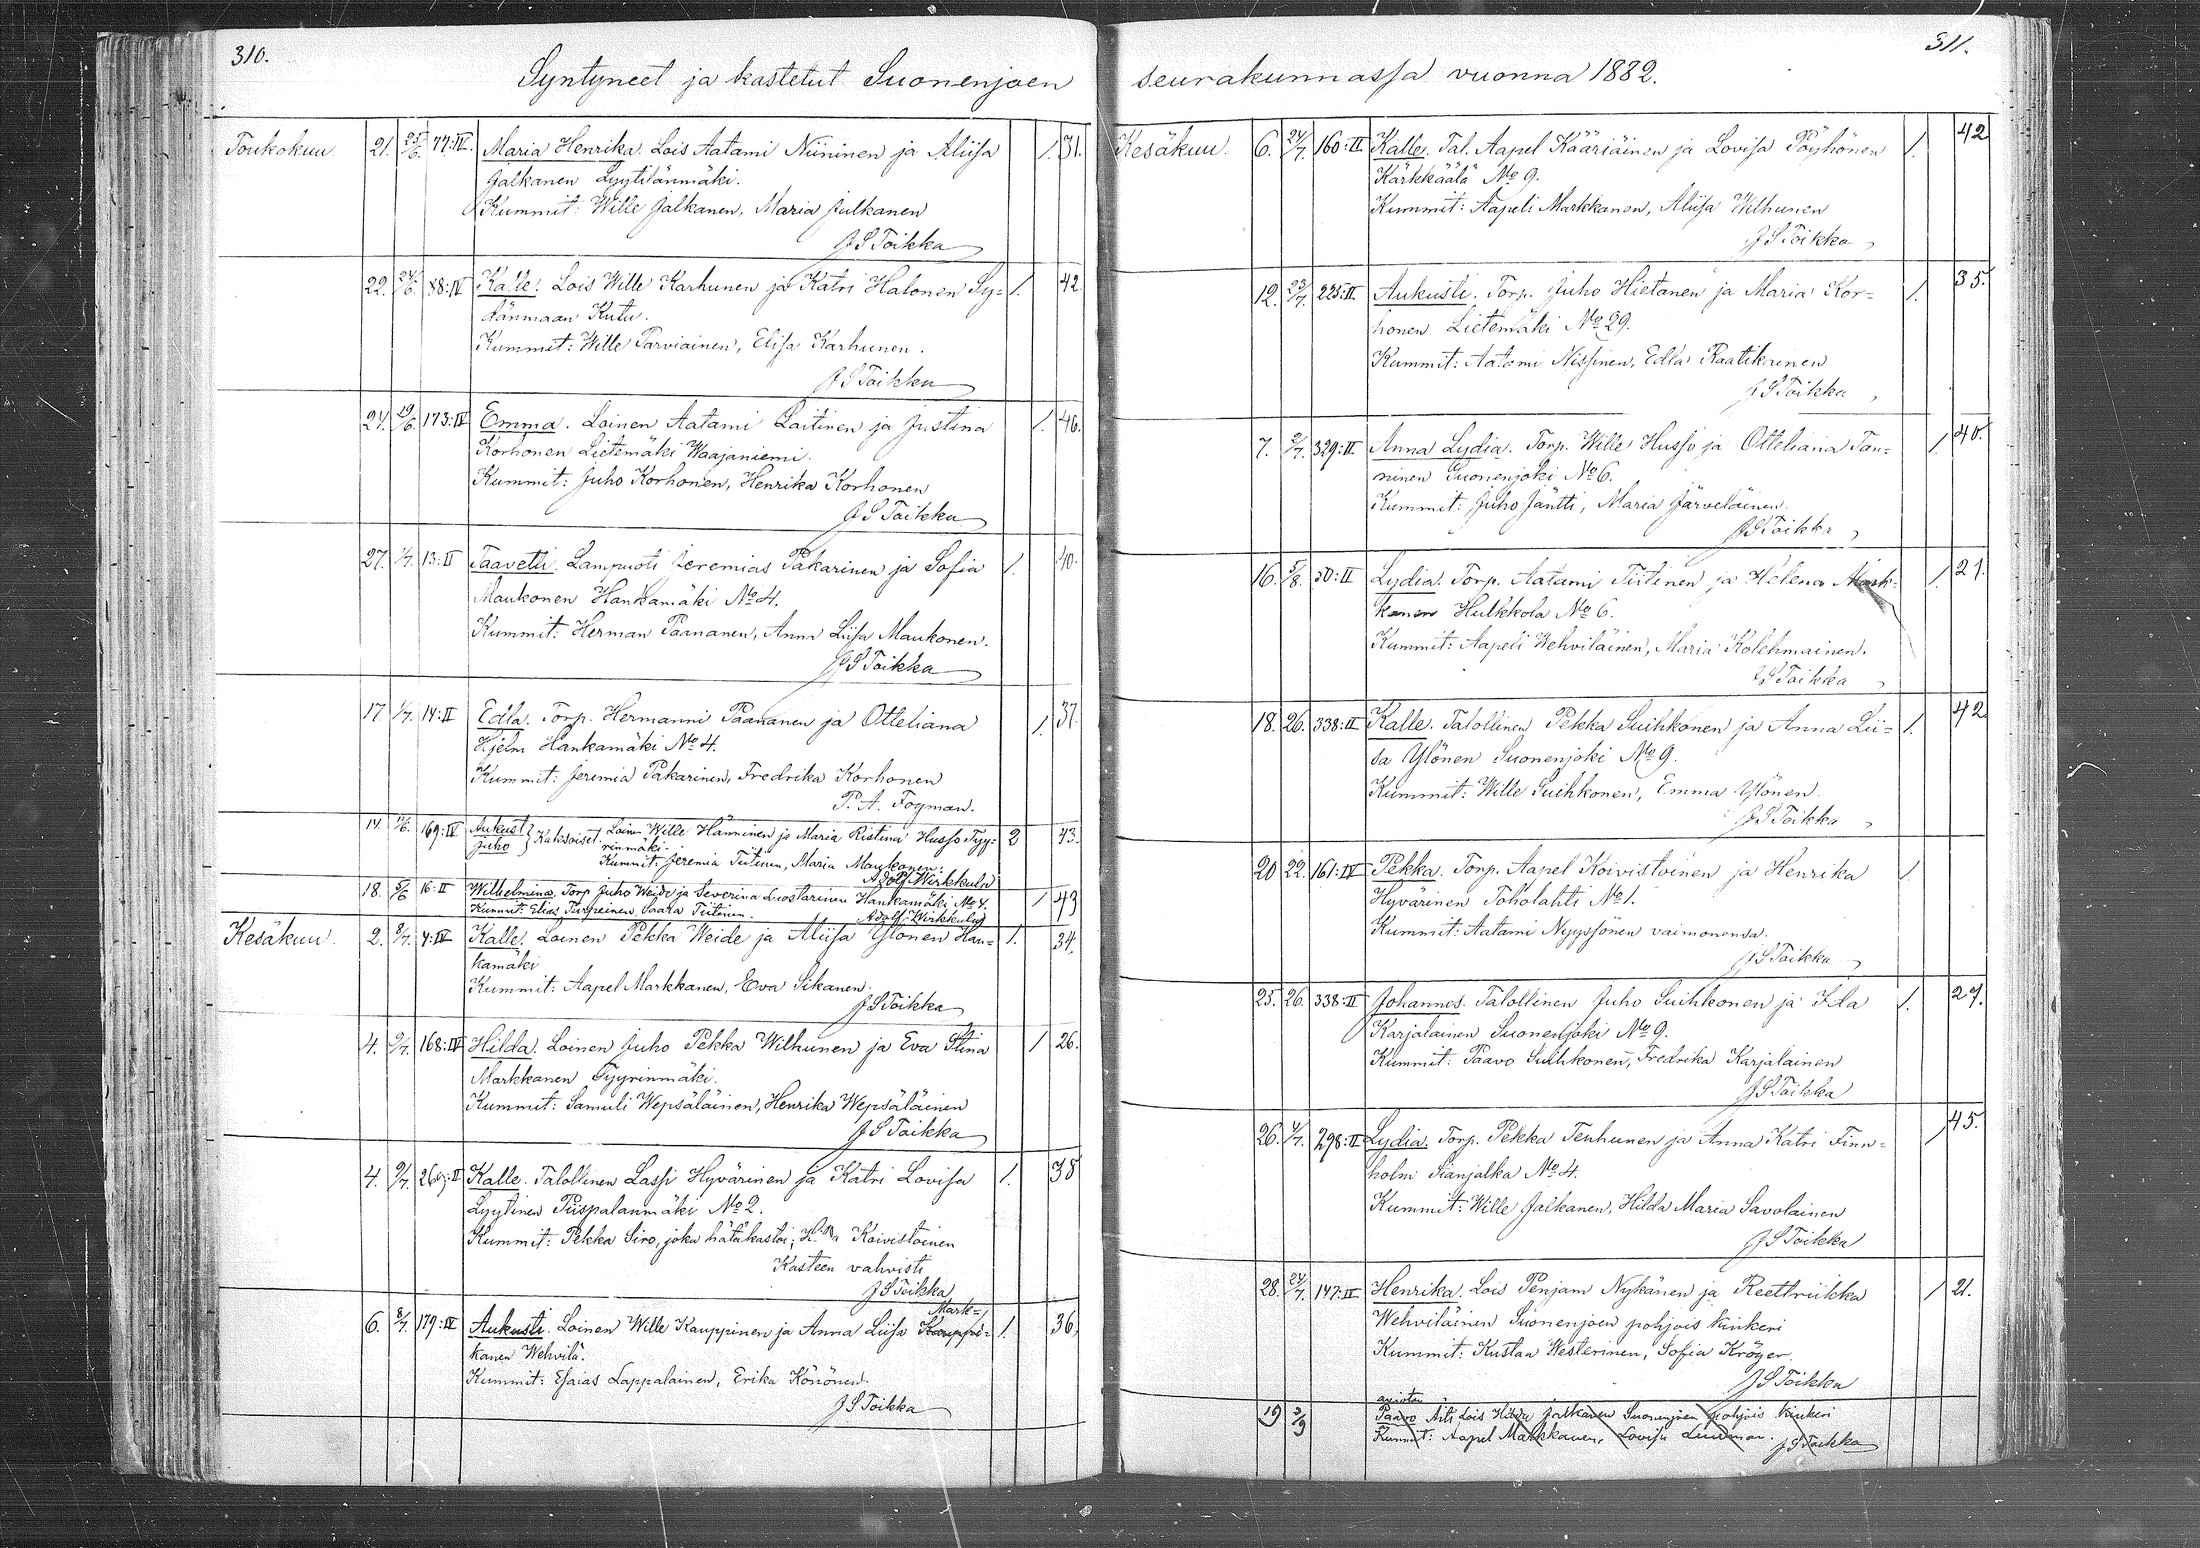 310.
Syntyneet ja kastetut Suonenjoen
Toukokuu 21. 25/6. 77:IV. Maria Henrika. Lois Aatami Niininen ja Aliisa 1. 31.
Jalkanen Lyytilänmäki.
Kummit: Wille Jalkanen, Maria Julkanen
J S Toikka
22. 24/6. 88:IV Kalle. Lois Wille Karhunen ja Katri Halonen Sy= 1. 42.
dänmaan Kutu.
Kummit: Wille Parviainen, Elisa Karhunen.
J S Toikka
24. 29/6. 173:IV Emma. Loinen Aatami Laitinen ja Justina 1. 46.
Korhonen Lietemäki Waajaniemi.
Kummit: Juho Korhonen, Henrika Korhonen
J S Toikka
27. 1/7. 13:II Taavetti. Lampuoti Jeremias Pakarinen ja Sofia 1. 40.
Maukonen Hankamäki No 4.
Kummit: Herman Paananen, Anna Liisa Maukonen.
J S Toikka
17 1/7. 14:II Edla. Torp. Hermanni Paananen ja Otteliana 1. 37.
Hjelm Hankamäki No 4.
Kummit: Jeremia Pakarinen, Fredrika Korhonen
P. A. Fogman.
14. 169:IV Aukust Juho } Kaksoiset. Loinen Wille Hänninen ja Maria Ristina Husso Tyy= 2 43.
rinmäki.
Kummit: Jeremia Tiitinen, Maria Maukonen.
Adolf Wirkkula
18. 5/6 16:II Wilhelmina. Torp Juho Weide ja Severina Luostarinen Hankamäki No 4. 1 43
Kummit: Elias Turpeinen, Saara Tiitinen.
Adolf Wirkkula
Kesäkuu. 2. 8/7. 4:IV Kalle. Loinen Pekka Weide ja Aliisa Ylönen Han= 1. 34.
kamäki
Kummit: Aapel Markkanen, Eva Sikanen.
J S Toikka
4. 9/7. 168:IV Hilda. Loinen Juho Pekka Wilhunen ja Eva Stina 1 26.
Markkanen Tyyrinmäki.
Kummit: Samuli Wepsäläinen, Henrika Wepsäläinen
J S Toikka
4. 9/7. II Kalle. Talollinen Lassi Hyvärinen ja Katri Lovisa 1. 38
Lyytinen Piispalanmäki No 2.
Kummit: Pekka Siro, joka hätäkastoi; Koivistoinen
Kasteen vahvisti
J S Toikka
Mark=
6. 8/7. 179:IV Aukusti. Loinen Wille Kauppinen ja Anna Liisa Kauppi= 1. 36.
kanen Wehvilä.
Kummit: Esaias Lappalainen, Erika Könönen.
J S Toikka
311.
seurakunnassa vuonna 1882.
Kesäkuu. 6. 24/7. 160:II Kalle. Tal. Aapel Kääriäinen ja Lovisa Pöyhönen 1. 42
Kärkkäälä No 9.
Kummit: Aapeli Markkanen, Aliisa Wilhunen
J S Toikka
12. 23/7. 225:II. Aukusti. Torp. Juho Hietanen ja Maria Kor= 1. 35.
honen Lietemäki No 29.
Kummit: Aatami Nissinen, Edla Raatikainen
J S Toikka
7. 2/7. 329:II Anna Lydia. Torp. Wille Husso ja Otteliana Tan= 1. 40.
ninen Suonenjoki No 6.
Kummit: Juho Jäntti, Maria Järveläinen.
J S Toikka
16. 5/8. 30:II Lydia. Torp. Aatami Tiitinen ja Helena Mark= 1. 21.
kanen Hulkkola No 6.
Kummit: Aapeli Wehviläinen, Maria Kolehmainen.
J S Toikka
18. 26. 338:II Kalle. Talollinen Pekka Suihkonen ja Anna Lii= 1. 42.
sa Ylönen Suonenjoki No 9.
Kummit: Wille Suihkonen, Emma Ylönen.
J S Toikka
20 22. 161:IV Pekka. Torp. Aapel Koivistoinen ja Henrika 1.
Hyvärinen Toholahti No 1.
Kummit: Aatami Nyyssönen vaimonensa.
J S Toikka
25. 26. 338:II Johannes. Talollinen Juho Suihkonen ja Ida 1. 27.
Karjalainen Suonenjoki No 9.
Kummit: Paavo Suihkonen, Fredrika Karjalainen
J S Toikka
26. 298:II Lydia. Torp. Pekka Tenhunen ja Anna Katri Finn= 1 45.
holm Sianjalka No 4.
Kummit: Wille Jalkanen, Hilda Maria Savolainen
J S Toikka
28. 24/7. 147:IV Henrika. Lois Penjam Nykänen ja Reettriikka 1 21.
Wehviläinen Suonenjoen pohjois kinkeri
Kummit: Kustaa Westerinen, Sofia Kröger
J S Toikka
avioton
19 3/9 Paavo Äiti Lois Hilda Jalkanen Suonenjoen pohjois kinkeri
Kummit: Aapel Markkanen, Lovisa
J S Toikka